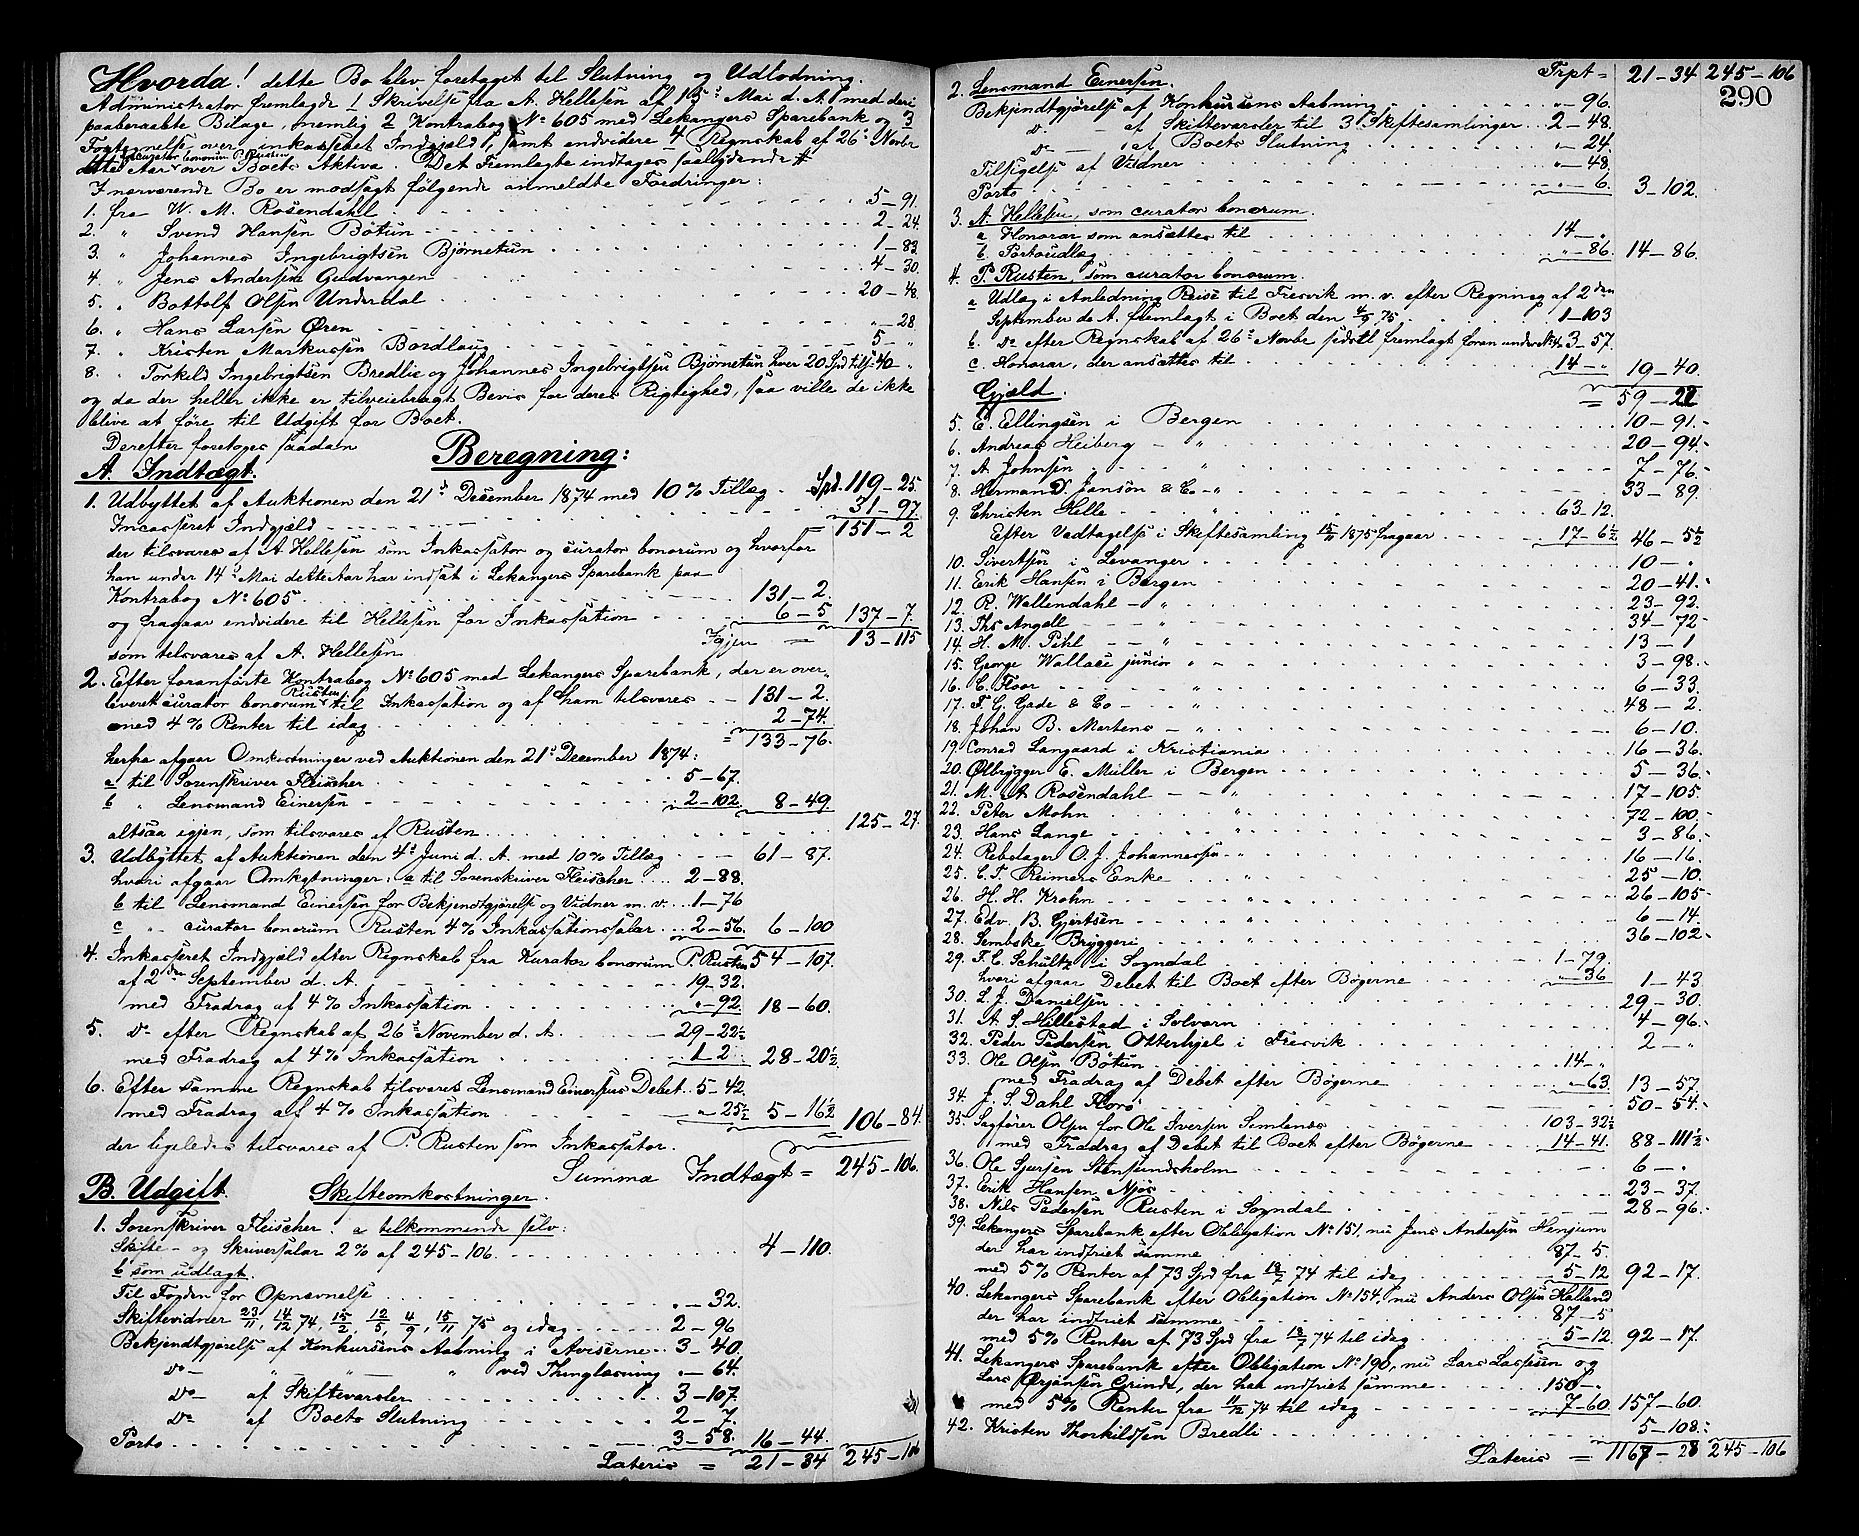 Hvorda! dette Bo blev foretaget til Slutning og Udlodning.
Administrator fremlagde 1 Skrivelse fra A. Hellesen af 15de Mai d. A. med deri
paaberaabte Bilage, nemlig 2 Kontrabog No 605 med Lekangers Sparebank og 3
over inkasseret Indgjæld, samt endvidere 4 Regnskab af 26de Novbr
dette Aar fra curator bonorum P. Rusten over Boets Aktiva. Det Fremlagte indtages saalydende #
I nærværende Bo er modsagt følgende anmeldte Fordringer:
1. fra W. M. Rosendahl 5-91.
2. " Svend Hansen Bøtun 2-24.
3. " Johannes Ingebrigtsen Bjørnetun 1-83.
4. " Jens Andersen Gudvangen 4-30.
5. " Bottolf Olsen Underdal 20-48.
6. " Hans Larsen Øren "-28.
7. " Kristen Markussen Bordlaug 5-"
8. " Torkeld Ingebrigtsen Bredlie og Johannes Ingebrigtsen Bjørnetun hver 20 Spd tils. 40-"
og da der heller ikke er tilveiebragt Bevis for deres Rigtighed, saa ville de ikke
blive at føre til Udgift for Boet.
Derefter foretages saadan Beregning:
A. Indtægt.
1. Udbyttet af Auktionen den 21de December 1874 med 10% Tillæg Spd. 119-25.
Incasseret Indgjæld 31-97.
= 151-2
der tilsvares af A. Hellesen som Inkassator og curator bonorum og hvorfor
han under 14de Mai dette Aar har indsat i Lekangers Sparebank paa
Kontrabog No 605 131-2.
og fragaar endvidere til Hellesen for Inkassation 6-5 137-7.
som tilsvares af A. Hellesen Igjen = 13-115
2. Efter foranførte Kontrabog No 605 med Lekangers Sparebank, der er over-
leveret curator bonorum Rusten til Inkassation og af ham tilsvares 131-2.
med 4% Renter til idag 2-74.
= 133-76.
herfra afgaar Omkostninger ved Auktionen den 21de December 1874:
a til Sorenskriver Fleischer 5-67.
b " Lensmand Einersen 2-102. 8-49.
altsaa igjen, som tilsvares af Rusten 125-27.
3. Udbyttet af Auktionen den 4de Juni d. A. med 10% Tillæg 61-87.
hvori afgaar Omkostninger: a til Sorenskriver Fleischer 2-88.
b til Lensmand Einersen for Bekjendtgjørelse og Vidner m. v. 1-76
c " curator bonorum Rusten 4% Inkassationssalær 2-56. 6-100
4. Inkasseret Indgjæld efter Regnskab fra Kurator bonorum P. Rusten 54-107.
af 2den September d. A. 19-32.
med Fradrag af 4% Inkassation "-92. 18-60.
5. do efter Regnskab af 26de November d. A. 29-22½
med Fradrag af 4% Inkassation 1-2 28-20½
6. Efter samme Regnskab tilsvares Lensmand Einersens Debet 5-42.
med Fradrag af 4% Inkassation "-25½ 5-16½ 106-84.
der ligeledes tilsvares af P. Rusten som Inkassator.
Summa Indtægt = 245-106.
B. Udgift. Skifteomkostninger.
1. Sorenskriver Fleischer. a tilkommende selv:
Skifte- og Skriversalær 2% af 245-106 4-110.
b som udlagt.
Til Fogden for Opnævnelse "-32.
Skiftevidner 23/11, 14/12 74, 15/2, 12/5, 4/9, 15/11 75 og idag 2-96
Bekjendtgjørelse af Konkursens Aabning i Aviserne 3-40.
do - " - " ved Thinglæsning "-64.
do - af Skiftevarsler 3-107.
do af Boets Slutning 2-7.
Porto 3-58. 16-44.
Lateris = 21-34 245-106
Trpt = 21-34 245-106
290
2. Lensmand Einersen.
Bekjendtgjørelse af Konkursens Aabning "-96.
do - af Skiftevarsler til 3 Skiftesamlinger 2-48.
do - af Boets Slutning "-24.
Tilsigelse af Vidner "-48.
Porto "-6. 3-102.
3. A. Hellesen, som curator bonorum.
a Honorar som ansættes til 14-"
b Portoudlæg "-86. 14-86.
4. P. Rusten, som curator bonorum.
a Udlæg i Anledning Reise til Fresvik m. v. efter Regning af 2den
September de A. fremlagt i Boet den 4/9 75 1-103
b do efter Regnskab af 26de Novbr sidstl. fremlagt foran under No 4 3-57.
c Honorar, der ansættes til 14-" 19-40.
Gjæld. = 59-22
5. E. Ellingsen i Bergen 10-91.
6. Andreas Heiberg - " 20-94.
7. A. Johnsen " 7-76.
8. Herman D. Janson & Co - " 33-89.
9. Christen Helle " 63-12.
Efter Vedtagelse i Skiftesamling 15/2 1875 fragaar 17-6½ 46-5½
10. Sivertsen i Levanger 10-"
11. Erik Hansen i Bergen 20-41.
12. R. Wallendahl - " 23-92.
13. Ths Angell - " 34-72
14. H. M. Pihl - " 13-1
15. George Wallace junior " 3-98.
16. C. Floor " 6-33.
17. F. G. Gade & Co - " 48-2.
18. Johan B. Martens - " 6-10.
19. Conrad Langaard i Kristiania 16-36.
20. Ølbrygger E. Müller i Bergen 5-36.
21. M. A. Rosendahl - " 17-105
22. Peter Mohn " 72-100.
23. Hans Lange " 3-86.
24. Rebslager O. J. Johannessen - " 16-16.
25. C. T. Reimers Enke " 25-10.
26. H. H. Krohn " 26-105
27. Edv. B. Gjertsen " 6-14.
28. Sembske Bryggeri " 36-102.
29. F. C. Schultz i Sogndal 1-79.
hvori afgaar Debet til Boet efter Bøgerne "-36 1-43
30. L. J. Danielsen 29-30.
31. A. S. Hillestad i Solvorn 4-96.
32. Peder Pedersen Otterhjel i Fresvik 2-"
33. Ole Olsen Bøtun 14-"
med Fradrag af Debet efter Bøgerne "-63. 13-57.
34. J. S. Dahl Florø 50-54.
35. Sagfører Olsen for Ole Iversen Simlenes 103-32½
med Fradrag af Debet til Boet efter Bøgerne 14-41. 88-111½
36. Ole Sjursen Stensundsholm 6-"
37. Erik Hansen Njøs 23-37.
38. Nils Pedersen Rusten i Sogndal 28-96.
39. Lekangers Sparebank efter Obligation No 151, nu Jens Andersen Henjum
der har indfriet samme 87-5.
med 5% Renter af 73 Spd fra 12/7 74 til idag 5-12 92-17.
40. Lekangers Sparebank efter Obligation No 154, nu Anders Olsen Halland
der har indfriet samme 87-5
med 5% Renter af 73 Spd fra 12/7 74 til idag 5-12. 92-17.
41. Lekangers Sparebank efter Obligation No 190, nu Lars Lassesen og
Lars Ørjansen Grinde, der har indfriet samme 150-"
med 5% Renter fra 11/12 74 til idag 7-60. 157-60.
42. Kristen Thorkildsen Bredli 5-108.
Lateris = 1167-28 245-106